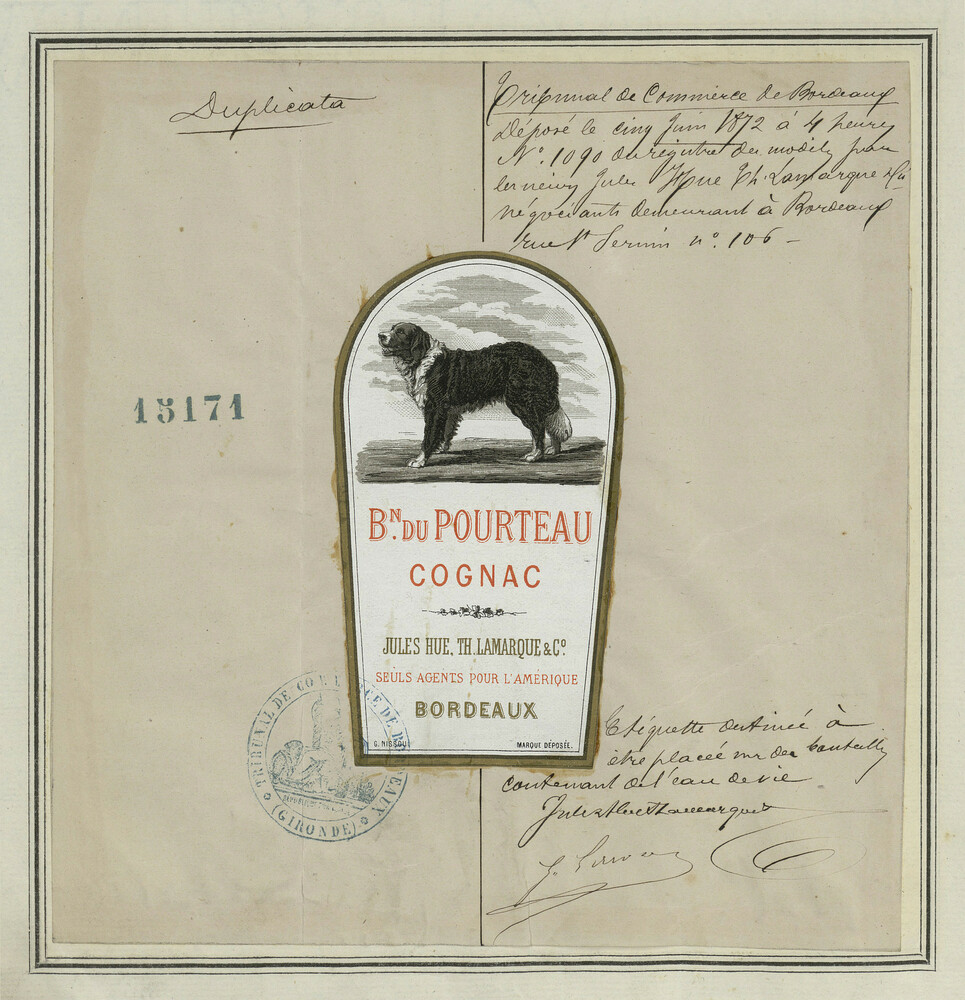 Duplicata
Tribunal de Commerce de Bordeaux
Déposé le cinq Juin 1872 à 4 heures
N° 1090 du registre des modèles par
les sieurs Jules Hue Th. Lamarque & Cie
négociants demeurant à Bordeaux
rue St Sernin n° 106 -
15171
BN. DU POURTEAU
COGNAC
JULES HUE, TH. LAMARQUE & Cº
SEULS AGENTS POUR L'AMÉRIQUE
BORDEAUX
G. NISSOU
MARQUE DÉPOSÉE.
TRIBUNAL DE COMMERCE DE BORDEAUX
(GIRONDE)
Etiquette destinée à
être placée sur des bouteilles
contenant de l'eau de vie
Jules Hue Th Lamarque